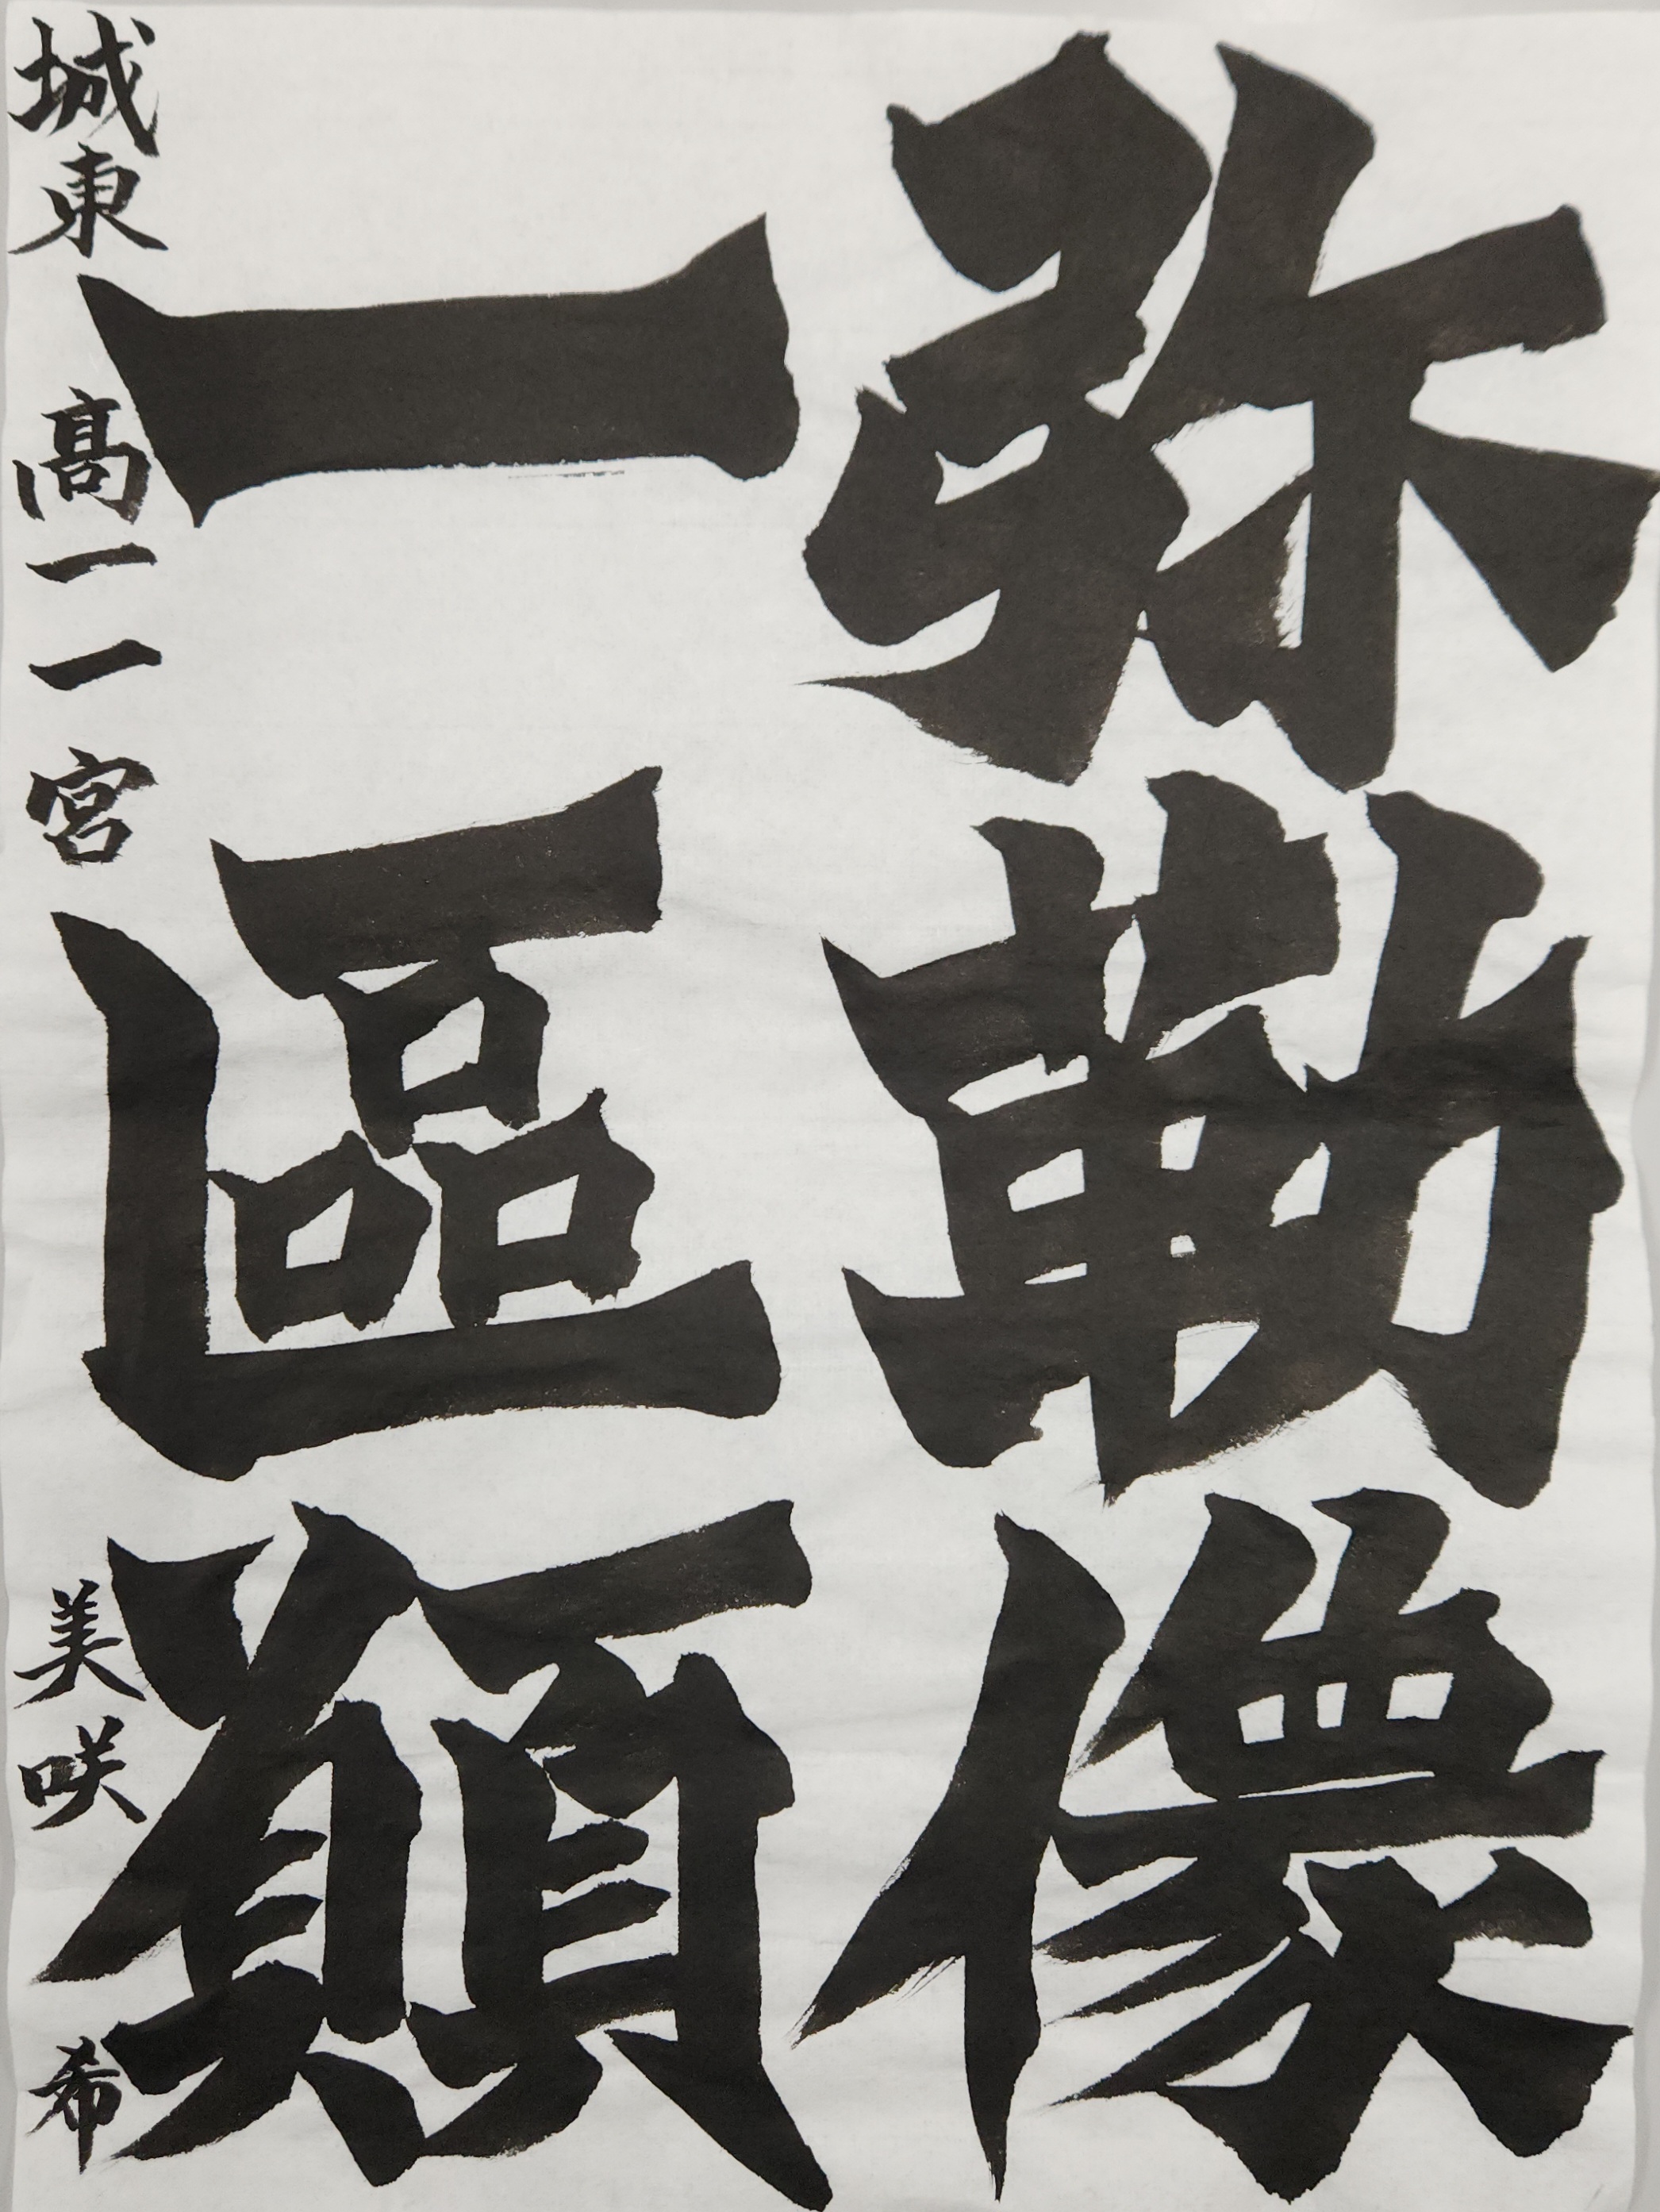 弥勒像
一區願
城東 高一 一宮 美咲 希